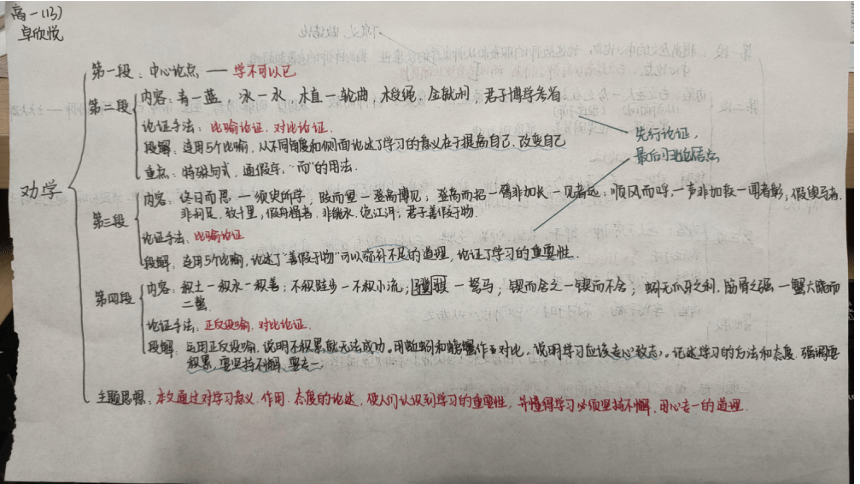 高一(13)
卓欣悦
劝学
第一段：中心论点 —— 学不可以已
第二段
内容：青一蓝， 冰一水 木直一轮曲 木受绳，金就利 君子博学参省
论证手法：比喻论证．对比论证．
段解：运用5个比喻，从不同角度和侧面论述了学习的意义在于提高自己．改变自己
重点：特殊句式，通假字，"而"的用法．
先行论证，
最后引出结论
第三段
内容：终日而思，一须臾所学；跂而望一登高博见；登高而招一臂非加长一见者远；顺风而呼一声非加疾一闻者彰；假舆马者，
非利足，致千里；假舟楫者，非能水，绝江河；君子善假于物．
论证手法：比喻论证
段解：运用5个比喻，论述了"善假于物"可以弥补不足的道理，论证了学习的重要性．
第四段
内容：积土一积水一积善；不积跬步一不积小流；骐骥一驽马；锲而舍之一锲而不舍；蚓无爪牙之利，筋骨之强一蟹六跪而
二螯
论证手法：正反设喻．对比论证．
段解：运用正反设喻，说明不积累就无法成功。用蚯蚓和螃蟹作对比，说明学习应该专心致志。论述学习的方法和态度．强调要
积累，要坚持不懈，要专一
主题思想：本文通过对学习意义．作用．态度的论述，使人们认识到学习的重要性，并懂得学习必须坚持不懈．用心专一的道理．